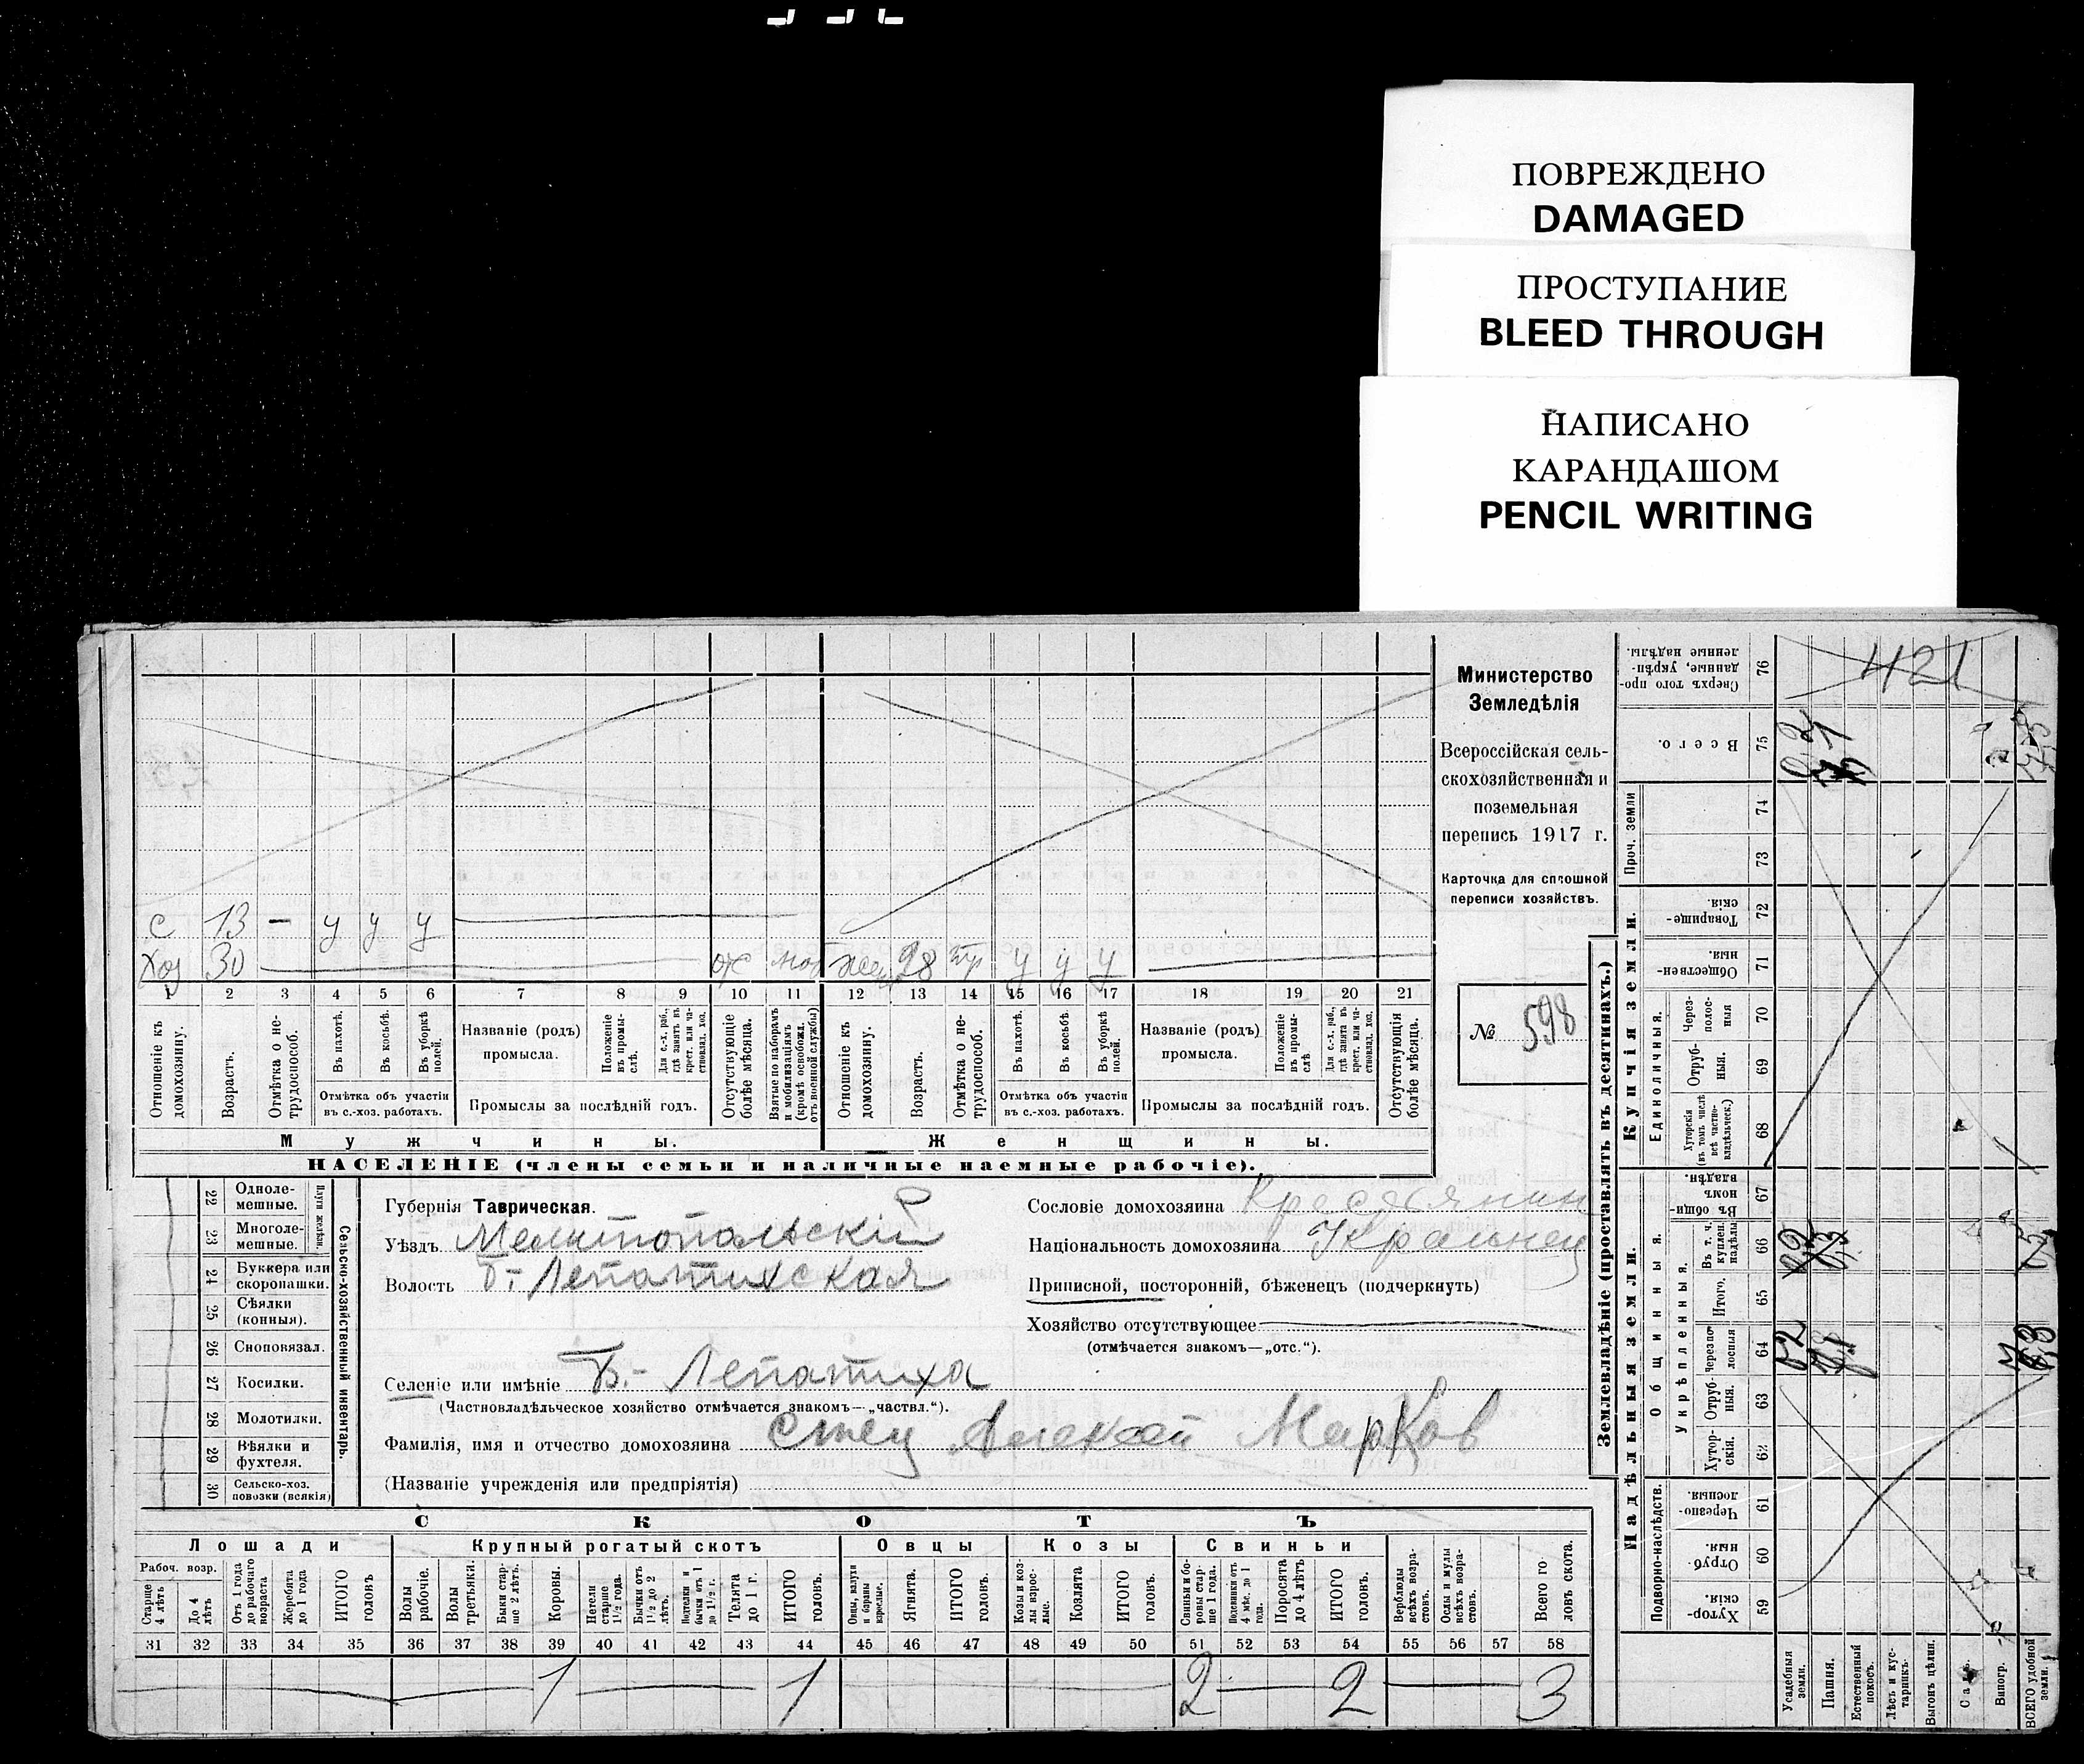 ПОВРЕЖДЕНО
DAMAGED
ПРОСТУПАНИЕ
BLEED THROUGH
НАПИСАНО
КАРАНДАШОМ
PENCIL WRITING
Министерство
Земледѣлія
Всероссійская сель-
скохозяйственная и
поземельная
перепись 1917 г.
Карточка для сплошной
переписи хозяйствъ.
№ 598
с 13 — у у у
Хоз 30 от моб жена 28 у у у
1 2 3 4 5 6 7 8 9 10 11 12 13 14 15 16 17 18 19 20 21
Отношеніе къ домохозяину.
Возрастъ.
Отмѣтка о не-трудоспособ.
Въ пахотѣ.
Въ косьбѣ.
Въ уборкѣ полей.
Отмѣтка объ участіи
въ с.-хоз. работахъ.
Названіе (родъ)
промысла.
Положеніе въ промы-слѣ.
Для с.-х. раб., гдѣ занятъ въ крест. или ча-стновлад. хоз.
Промыслы за послѣдній годъ.
Отсутствующіе болѣе мѣсяца.
Взятые по наборамъ и мобилизаціямъ (кромѣ освобожд. отъ военной службы)
Отношеніе къ домохозяину.
Возрастъ.
Отмѣтка о не-трудоспособ.
Въ пахотѣ.
Въ косьбѣ
Въ уборкѣ полей.
Отмѣтка объ участіи
въ с.-хоз. работахъ.
Названіе (родъ)
промысла.
Положеніе въ промы-слѣ
Для с.-х. раб., гдѣ занята въ крест. или ча-стновлад. хоз.
Промыслы за послѣдній годъ.
Отсутствующія болѣе мѣсяца.
Мужчины.
Женщины.
НАСЕЛЕНІЕ (члены семьи и наличные наемные рабочіе).
22 Одноле-мешные.
23 Многоле-мешные.
Плуги желѣзн.
24 Буккера или скоропашки.
25 Сѣялки (конныя).
26 Сноповязал.
27 Косилки.
28 Молотилки.
29 Вѣялки и фухтеля.
30 Сельско-хоз. повозки (всякія)
Сельско-хозяйственный инвентарь.
Губернія Таврическая.
Уѣздъ Мелитопольскій
Волость Б.-Лепатихская
Селеніе или имѣніе Б.-Лепатиха
(Частновладѣльческое хозяйство отмѣчается знакомъ—„частвл.“).
Фамилія, имя и отчество домохозяина Алексей Марков
(Названіе учрежденія или предпріятія)
Сословіе домохозяина Крестьянин
Національность домохозяина Украинец
Приписной, посторонній, бѣженец (подчеркнуть)
Хозяйство отсутствующее
(отмѣчается знакомъ—„отс.“).
СКОТЪ
Лошади
Крупный рогатый скотъ
Овцы
Козы
Свиньи
Рабоч. возр.
Старше 4 лѣтъ
До 4 лѣтъ
Отъ 1 года до рабочаго возраста
Жеребята до 1 года
ИТОГО головъ
Волы рабочіе.
Волы третьяки.
Быки стар-ше 2 лѣтъ.
Коровы.
Нетели старше 1½ года.
Бычки отъ 1½ до 2 лѣтъ.
Телята до 1 г.
ИТОГО головъ.
Ягнята.
ИТОГО головъ.
Козы и коз-лы взрос-лые.
Козлята
ИТОГО головъ.
Свиньи и бо-ровы стар-ше 1 года.
Поросята до 4 лѣтъ
ИТОГО головъ.
Верблюды всѣхъ возра-стовъ.
Ослы и мулы всѣхъ возра-стовъ.
Всего го-ловъ скота.
31 32 33 34 35 36 37 38 39 40 41 42 43 44 45 46 47 48 49 50 51 52 53 54 55 56 57 58
1 1 2 2 3
Землевладѣніе (проставлять въ десятинахъ.)
Купчія земли.
Надѣльныя земли.
76 Сверхъ того про-данные, укрѣп-ленные надѣлы.
421
75 Всего.
Проч. земли
74
73
72 Товарище-скія.
71 Обществен-ныя.
Единоличныя.
70 Через-полос-ныя
69 Отруб-ныя.
68 Хуторскія (въ томъ числѣ всѣ частно-владѣльческ.)
Общинныя.
67 Въ общи-номъ владѣн.
Укрѣпленныя.
66 Въ т. ч. куплен. надѣлы
65 Итого.
64 Черезпо-лосныя
63 Отруб-ныя.
62 Хутор-скія.
Подворно-наслѣдств.
61 Черезпо-лосныя.
60 Отруб-ныя.
59 Хутор-скія.
Усадебныя земли.
Пашня.
Естественный покосъ.
Лѣсъ и кус-тарникъ.
Выгонъ цѣлин.
Виногр.
ВСЕГО удобной земли.